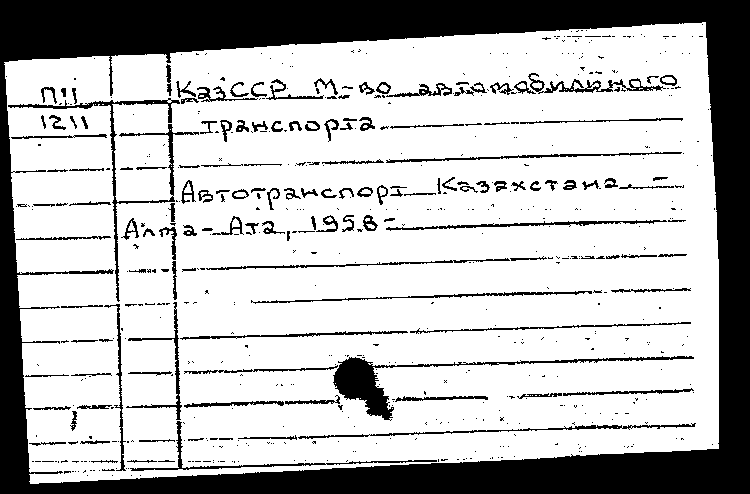 П11 КазССР. М-во автомобильного
1211 транспорта.
Автотранспорт Казахстана. –
Алма-Ата, 1958-